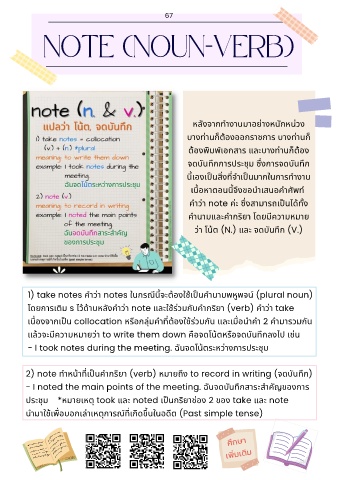 67
NOTE (NOUN-VERB)
note (n. & v.)
แปลว่า โน้ต, จดบันทึก
1) take notes = collocation
(v.) + (n.) *plural
meaning: to write them down
example: I took notes during the
meeting.
ฉันจดโน้ตระหว่างการประชุม
2) note (v.)
meaning: to record in writing
example: I noted the main points
of the meeting.
ฉันจดบันทึกสาระสำคัญ
ของการประชุม
หลังจากทำงานมาอย่างหนักหน่วง
บางท่านก็ต้องออกราชการ บางท่านก็
ต้องพิมพ์เอกสาร และบางท่านก็ต้อง
จดบันทึกการประชุม ซึ่งการจดบันทึก
นี้เองเป็นสิ่งที่จำเป็นมากในการทำงาน
เนื้อหาตอนนี้จึงขอนำเสนอคำศัพท์
คำว่า note ค่ะ ซึ่งสามารถเป็นได้ทั้ง
คำนามและคำกริยา โดยมีความหมาย
ว่า โน้ต (N.) และ จดบันทึก (V.)
1) take notes คำว่า notes ในกรณีนี้จะต้องใช้เป็นคำนามพหูพจน์ (plural noun)
โดยการเติม s ไว้ด้านหลังคำว่า note และใช้ร่วมกับคำกริยา (verb) คำว่า take
เนื่องจากเป็น collocation หรือกลุ่มคำที่ต้องใช้ร่วมกัน และเมื่อนำคำ 2 คำมารวมกัน
แล้วจะมีความหมายว่า to write them down คือจดโน้ตหรือจดบันทึกลงไป เช่น
- I took notes during the meeting. ฉันจดโน้ตระหว่างการประชุม
2) note ทำหน้าที่เป็นคำกริยา (verb) หมายถึง to record in writing (จดบันทึก)
- I noted the main points of the meeting. ฉันจดบันทึกสาระสำคัญของการ
ประชุม *หมายเหตุ took และ noted เป็นกริยาช่อง 2 ของ take และ note
นำมาใช้เพื่อบอกเล่าเหตุการณ์ที่เกิดขึ้นในอดีต (Past simple tense)
ศึกษา
เพิ่มเติม